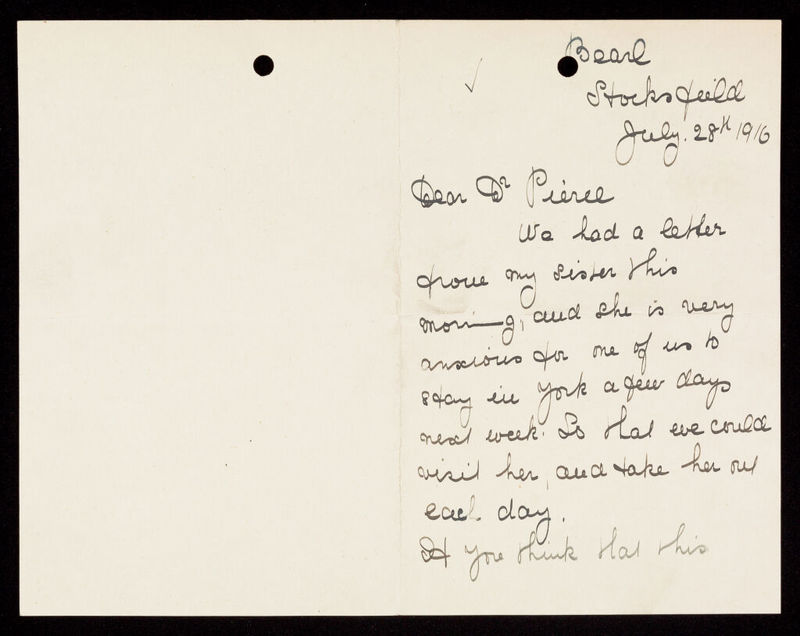 Bearl
Stocksfield
July. 28th 1916
Dear Dr Pierce
We had a letter
from my sister this
morning, and she is very
anxious for one of us to
stay in York a few days
next week. So that we could
visit her, and take her out
each day.
If you think that this